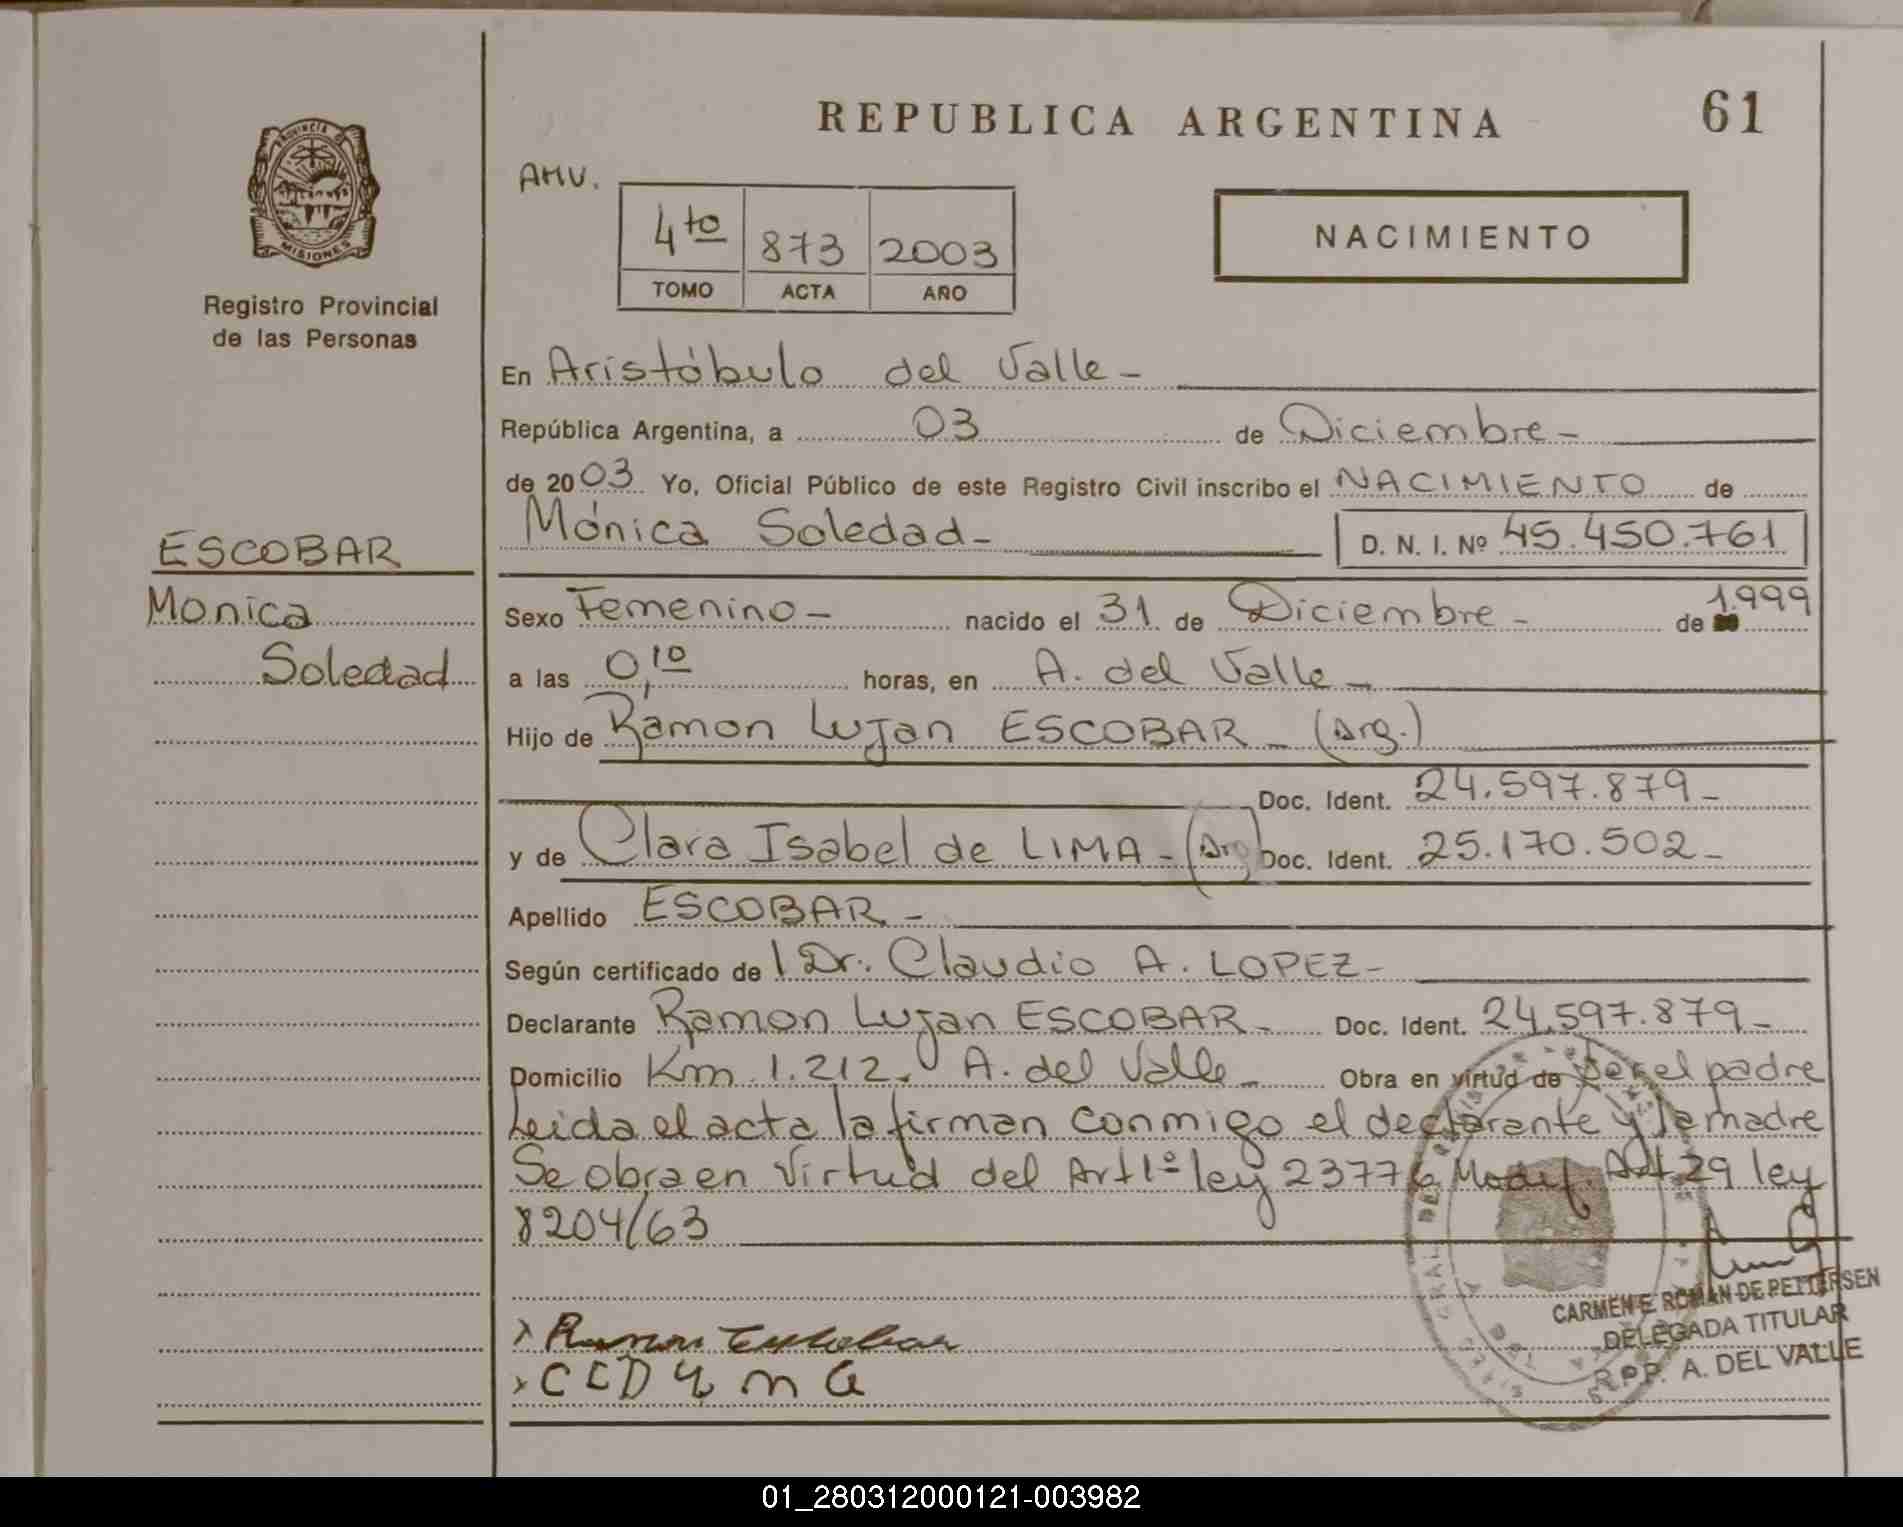 REPUBLICA ARGENTINA
61
PROVINCIA DE
MISIONES
Registro Provincial
de las Personas
AMV.
4to 873 2003
TOMO ACTA AÑO
NACIMIENTO
En Aristóbulo del Valle-
República Argentina, a 03 de Diciembre-
de 2003 Yo, Oficial Público de este Registro Civil inscribo el NACIMIENTO de
Mónica Soledad-
D. N. I. Nº 45.450.761
ESCOBAR
Monica
Soledad
Sexo Femenino- nacido el 31 de Diciembre- de 1.999
a las 0,10 horas, en A. del Valle-
Hijo de Ramon Lujan ESCOBAR- (Arg.)
Doc. Ident. 24.597.879-
y de Clara Isabel de LIMA-(Arg) Doc. Ident. 25.170.502-
Apellido ESCOBAR-
Según certificado de l Dr. Claudio A. LOPEZ-
Declarante Ramon Lujan ESCOBAR- Doc. Ident. 24.597.879-
Domicilio Km 1.212. A. del Valle- Obra en virtud de ser el padre
Leida el acta la firman conmigo el declarante y la madre
Se obra en Virtud del Art 1º ley 23776 Modif. Art 29 ley
8204/63
CARMEN E. ROMAN DE PETTERSEN
DELEGADA TITULAR
R.P.P. A. DEL VALLE
01_280312000121-003982